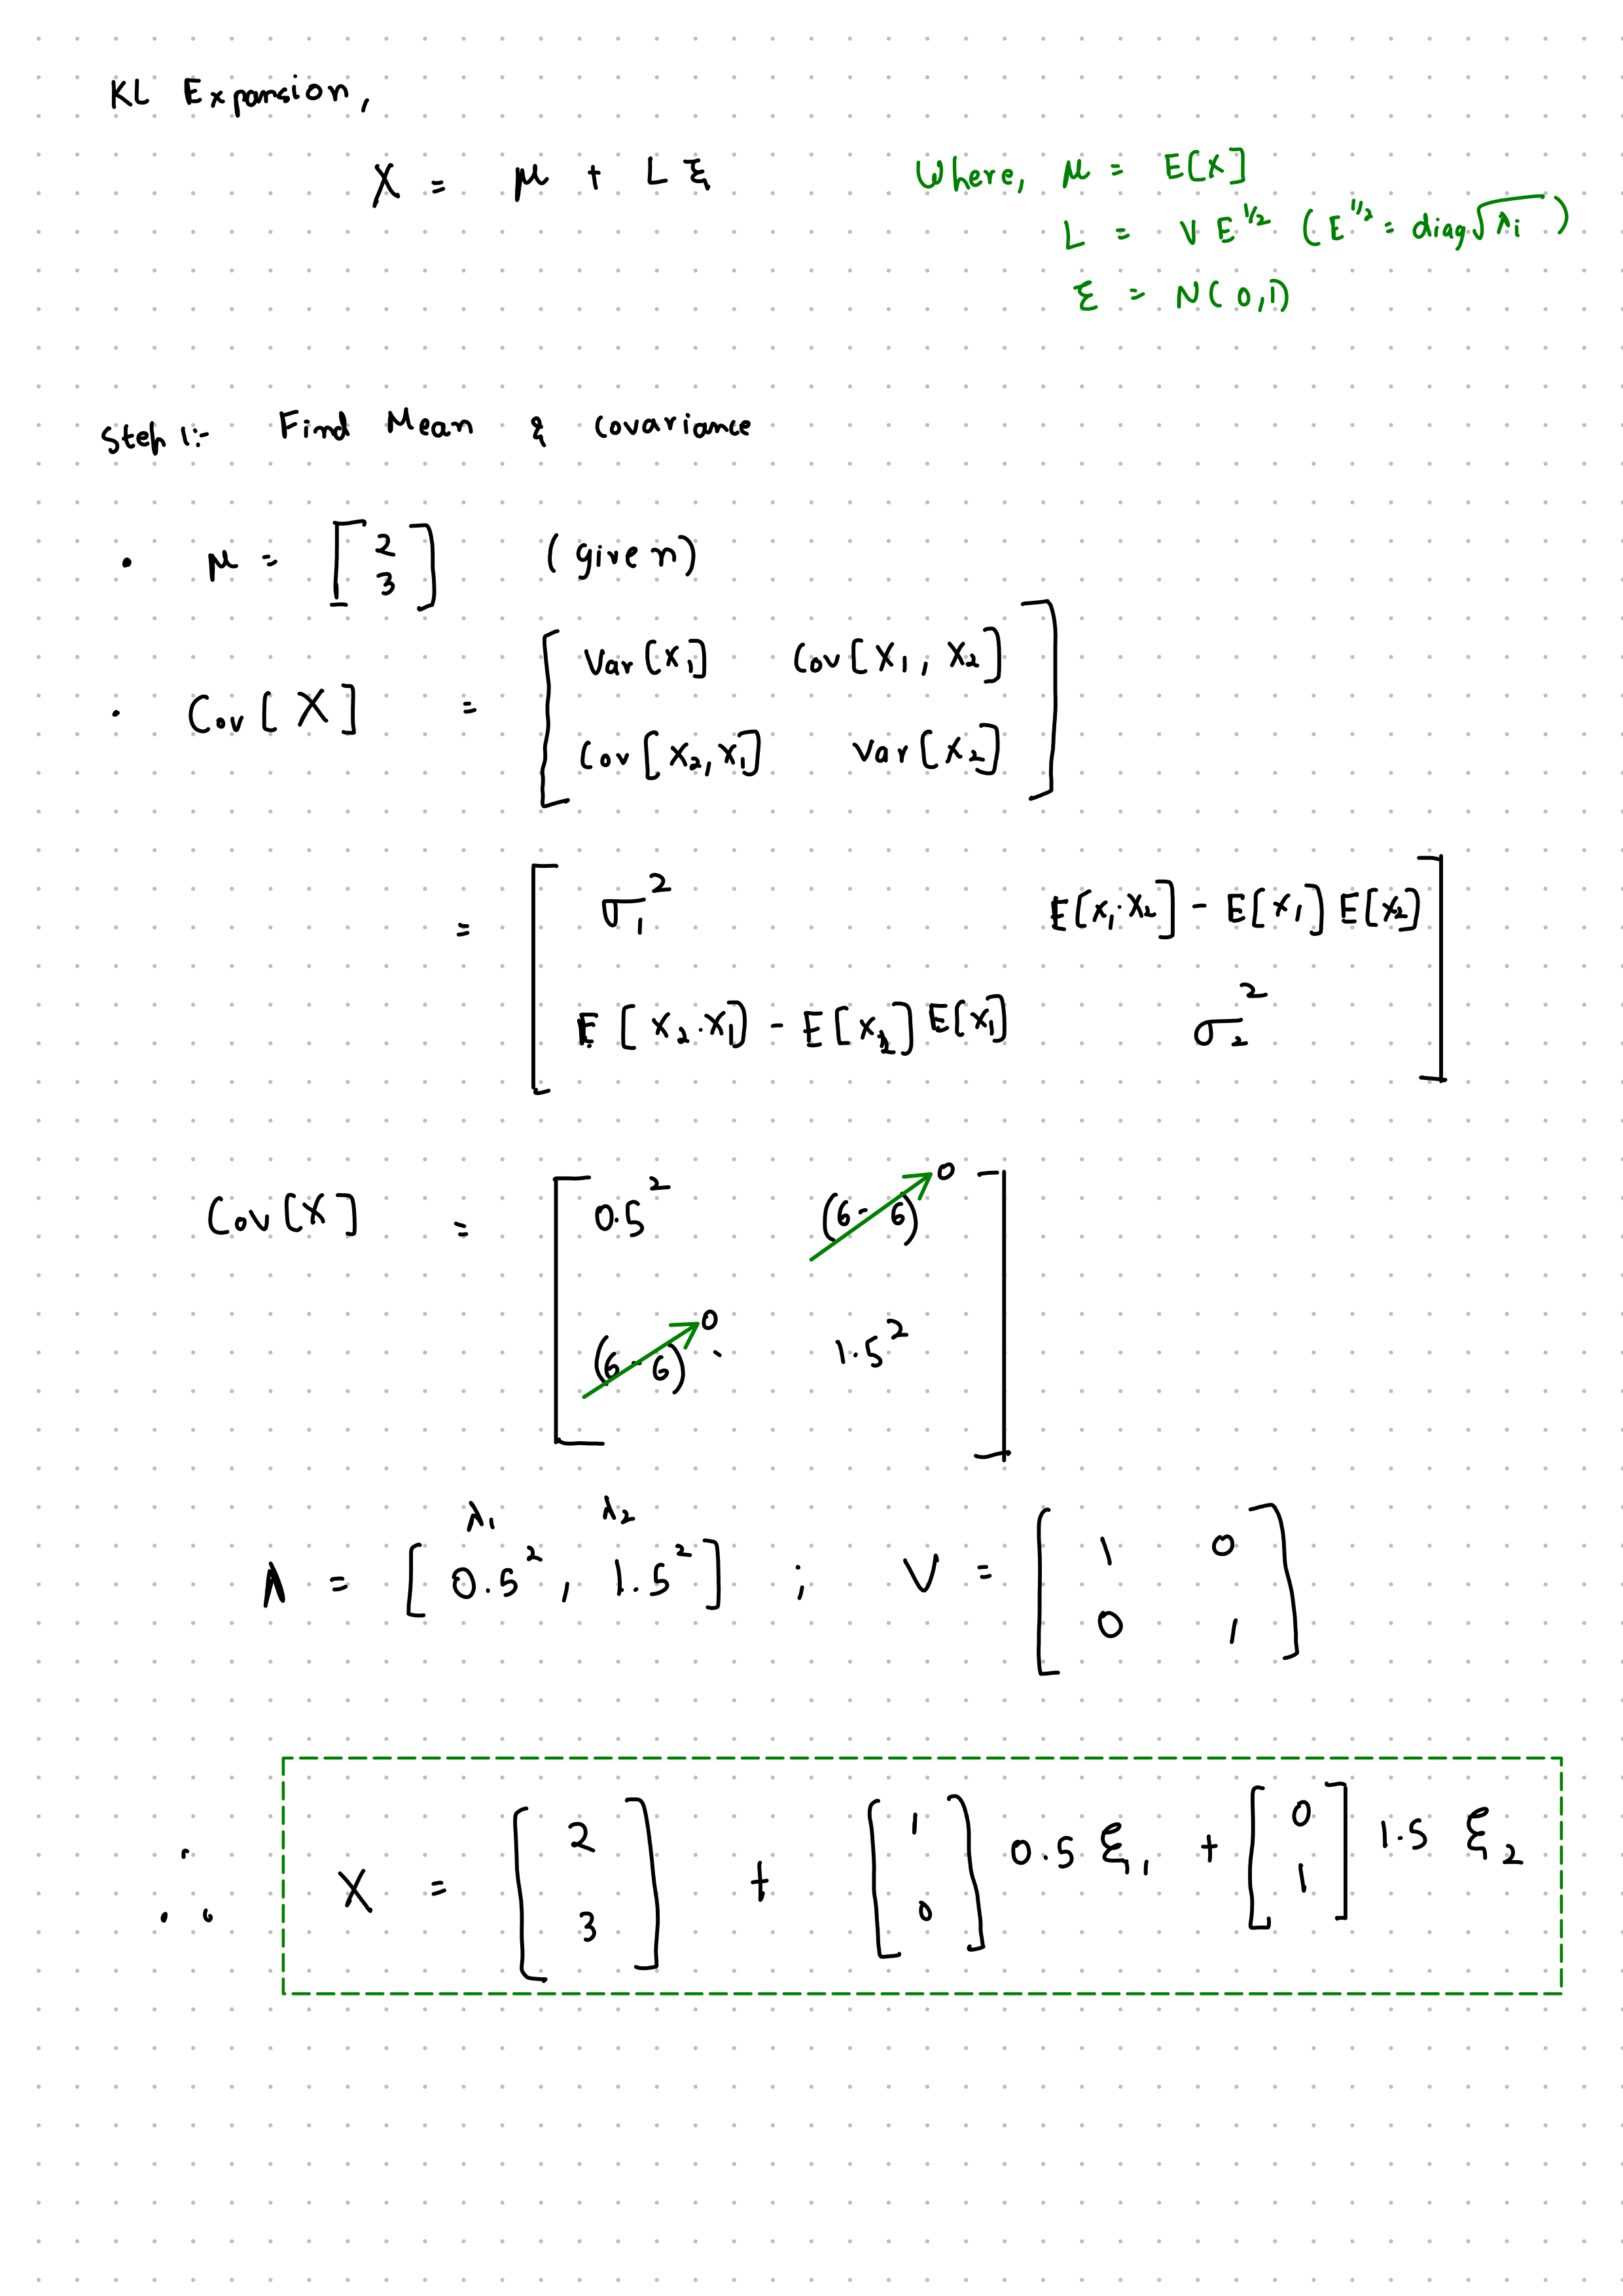 KL Expansion,
X = μ + L ξ
Where, μ = E[X]
L = V E^{1/2} (E^{1/2} = diag √λi)
ξ = N(0,1)
Step 1:- Find Mean & covariance
• μ = [2 3] (given)
• Cov[X] = [Var[X₁] Cov[X₁, X₂]
Cov[X₂, X₁] Var[X₂]]
= [σ₁² E[X₁·X₂] - E[X₁] E[X₂]
E[X₂·X₁] - E[X₂] E[X₁] σ₂²]
Cov[X] = [0.5² (6-6) 0
(6-6) 0 1.5²]
λ₁ λ₂
Λ = [0.5², 1.5²] ; V = [1 0
0 1]
∴ X = [2 3] + [1 0] 0.5 ξ₁ + [0 1] 1.5 ξ₂